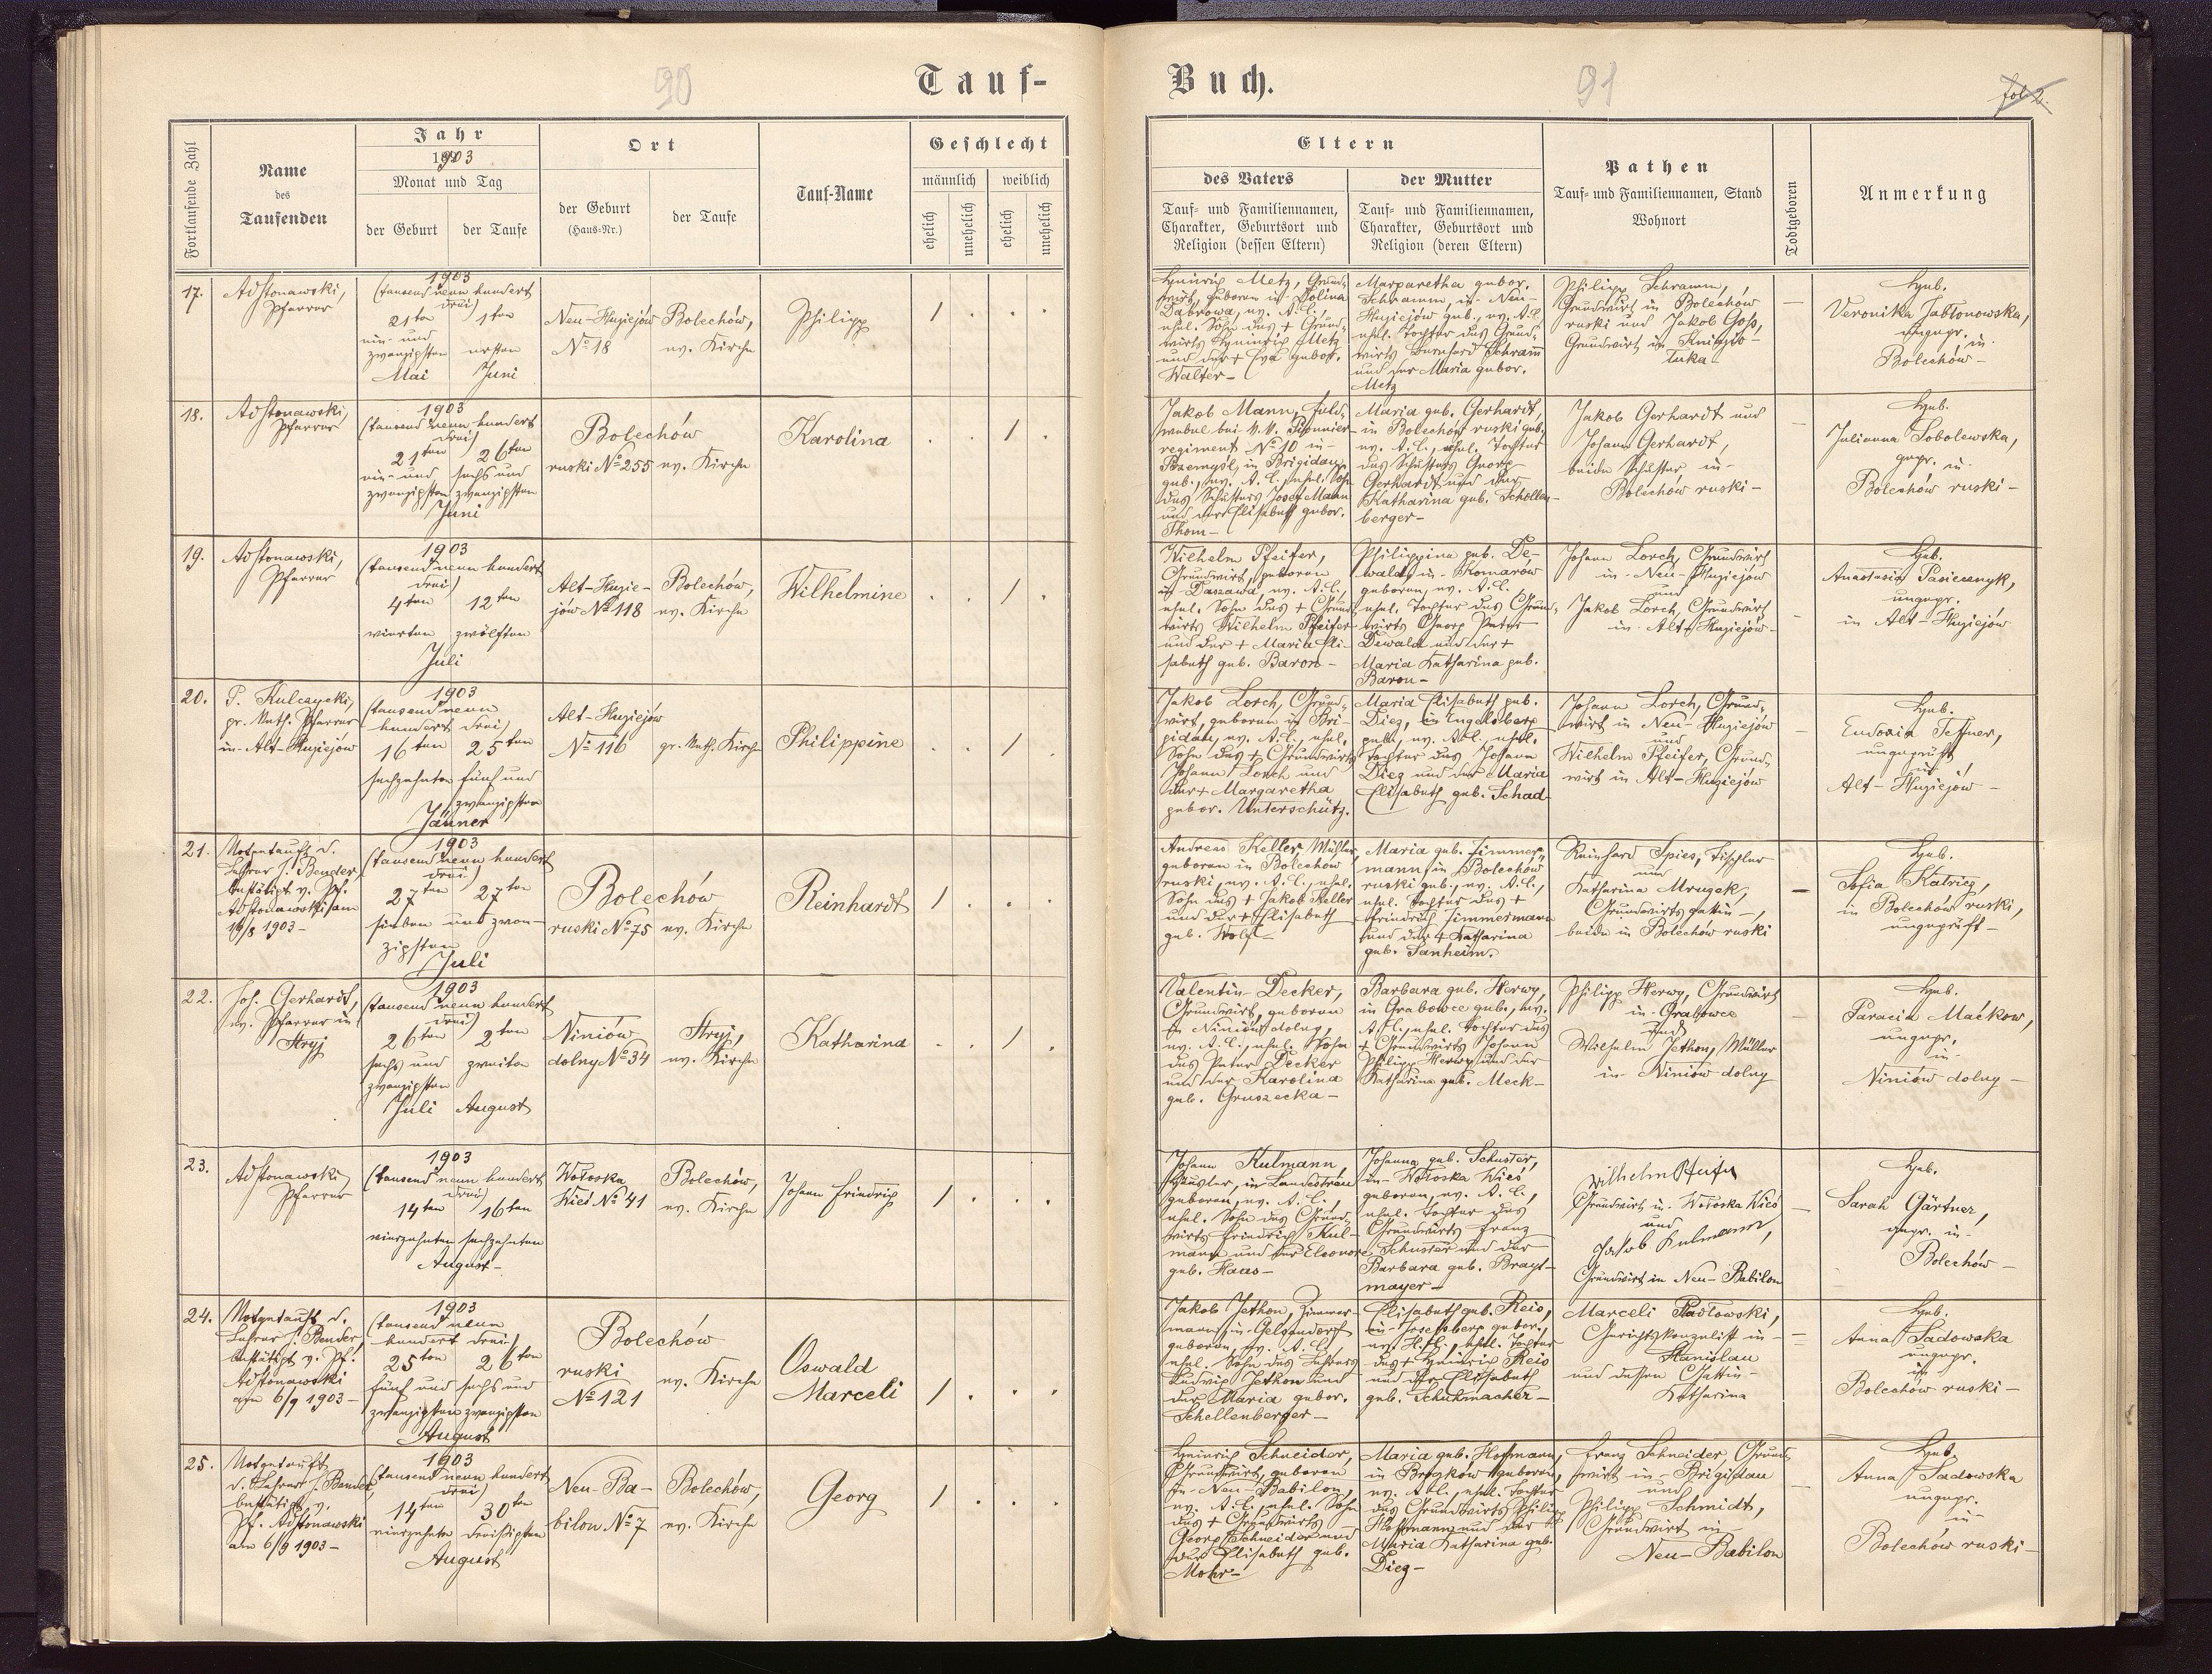 90
Tauf-
Fortlaufende Zahl
Name
des
Taufenden
Jahr
1903
Monat und Tag
der Geburt
der Taufe
Ort
der Geburt
(Haus-Nr.)
der Taufe
Tauf-Name
Geschlecht
männlich
weiblich
ehelich
unehelich
ehelich
unehelich
17.
Adstonawski,
Pfarrer
1903
(tausend neun hundert
drei)
21ten
1ten
ein- und
zwanzigsten
ersten
Mai
Juni
Neu-Hugiejów
№ 18
Bolechów,
ev. Kirche
Philipp
1 . . .
18.
Adstonawski,
Pfarrer
1903
(tausend neun hundert
drei)
21ten
26ten
ein- und
sechs und
zwanzigsten
zwanzigsten
Juni
Bolechów
ruski № 255
ev. Kirche
Karolina
. . 1 .
19.
Adstonawski,
Pfarrer
1903
(tausend neun hundert
drei)
4ten
12ten
vierten
zwölften
Juli
Alt-Hugie-
jów № 118
Bolechów,
ev. Kirche
Wilhelmine
. . 1 .
20.
P. Kulczycki,
gr. kath. Pfarrer
in Alt-Hugiejów
1903
(tausend neun
hundert drei)
16ten
25ten
sechzehnten
fünf und
zwanzigsten
Jänner
Alt-Hugiejów
№ 116
gr. kath. Kirche
Philippine
. . 1 .
21.
Notgetauft d.
Lehrer J. Bender,
bestätigt v. Pf.
Adstonawski am
1903-
1903
(tausend neun hundert
drei)
27ten
27ten
sieben und zwan-
zigsten
Juli
Bolechów
ruski № 75
ev. Kirche
Reinhardt
1 . . .
22.
Joh. Gerhardt,
ev. Pfarrer in
Stryj
1903
(tausend neun hundert
drei)
26ten
2ten
sechs und
zweiten
zwanzigsten
Juli
August
Niniów
dolny № 34
Stryj,
ev. Kirche
Katharina
. . 1 .
23.
Adstonawski,
Pfarrer
1903
(tausend neun hundert
drei)
14ten
16ten
vierzehnten
sechzehnten
August-
Wołoska
Wieś № 41
Bolechów,
ev. Kirche
Johann Friedrich
1 . . .
24.
Notgetauft d.
Lehrer J. Bender,
bestätigt v. Pf.
Adstonawski
am 6/9 1903-
1903
(tausend neun
hundert drei)
25ten
26ten
fünf und
sechs und
zwanzigsten
zwanzigsten
August
Bolechów
ruski
№ 121
ev. Kirche
Oswald
Marceli
1 . . .
25.
Notgetauft
d. Lehrer J. Bender,
bestätigt v.
Pf. Adstonawski
am 6/9 1903-
1903
(tausend neun hundert
drei)
14ten
30ten
vierzehnten
dreißigsten
August
Neu-Ba-
bilon № 7
Bolechów,
ev. Kirche
Georg
1 . . .
Buch.
91
fol 2.
Eltern
des Vaters
der Mutter
Tauf- und Familiennamen,
Charakter, Geburtsort und
Religion (dessen Eltern)
Tauf- und Familiennamen,
Charakter, Geburtsort und
Religion (deren Eltern)
Pathen
Tauf- und Familiennamen, Stand
Wohnort
Todtgeboren
Anmerkung
Heinrich Metz, Grund-
wirt, geboren in Dolina
Dąbrowa, ev. A. C.,
ehel. Sohn des + Grund-
wirts Heinrich Metz
und der + Eva gebor.
Walter-
Margaretha gebor.
Schramm, in Neu-
Hugiejów geb., ev. A. C.
ehel. Tochter des Grund-
wirts Bernhard Schramm
und der Maria gebor.
Metz
Philipp Schramm,
Grundwirt in Bolechów
ruski und Jakob Goss,
Grundwirt in Kniazio-
łuka-
Heb.
Veronika Jabłonowska,
ungepr.
in
Bolechów-
Jakob Mann, Feld-
webel bei k. k. Pionnier-
regiment № 10 in
Przemyśl, in Brigidau
geb., ev. A. C., ehel. Sohn
des Schusters Josef Mann
und der Elisabeth gebor.
Thom-
Maria geb. Gerhardt,
in Bolechów ruski geb.
ev. A. C., ehel. Tochter
des Schusters Georg
Gerhardt und der
Katharina geb. Schellen-
berger-
Jakob Gerhardt und
Johann Gerhardt,
beide Schuster in
Bolechów ruski-
Heb.
Julianna Sobolewska,
gepr. in
Bolechów ruski-
Wilhelm Pfeifer,
Grundwirt, geboren
in Daszawa, ev. A. C.,
ehel. Sohn des + Grund-
wirts Wilhelm Pfeifer
und der + Maria Eli-
sabeth geb. Baron-
Philippina geb. De-
wald, in Komarów
geboren, ev. A. C.
ehel. Tochter des Grund-
wirts Georg Peter
Dewald und der +
Maria Katharina geb.
Baron-
Johann Lorch, Grundwirt
in Neu-Hugiejów
und
Jakob Lorch, Grundwirt
in Alt-Hugiejów-
Heb.
Anastasia Pasiecznyk,
ungepr.
in Alt-Hugiejów
Jakob Lorch, Grund-
wirt, geboren in Bri-
gidau, ev. A. C., ehel.
Sohn des + Grundwirts
Johann Lorch und
der + Margaretha
gebor. Unterschütz.
Maria Elisabeth geb.
Dieg, in Engelsberg
geb., ev. A. C., ehel.
Tochter des Johann
Dieg und der Maria
Elisabeth geb. Schad
Johann Lorch, Grund-
wirt in Neu-Hugiejów
und
Wilhelm Pfeifer, Grund-
wirt in Alt-Hugiejów
Heb.
Eudoxia
ungeprüft
in
Alt-Hugiejów-
Andreas Keller, Müller,
geboren in Bolechów
ruski, ev. A. C., ehel.
Sohn des + Jakob Keller
und der + Elisabeth
geb. Wolf-
Maria geb. Zimmer-
mann, in Bolechów
ruski geb., ev. A. C.,
ehel. Tochter des +
Friedrich Zimmermann
und der + Katharina
geb. Tanheim.
Reinhard Spies, Tischler
und
Katharina Mruzek,
Grundwirtsgattin-,
beide in Bolechów ruski
Heb.
Sofia
in Bolechów ruski,
ungeprüft-
Valentin Decker,
Grundwirt, geboren
in Niniów dolny,
ev. A. C., ehel. Sohn
des Peter Decker
und der Karolina
geb. Gruszecka-
Barbara geb. Herwy,
in Grabowce geb., ev.
A. C., ehel. Tochter des
+ Grundwirts Johann
Philipp Herwy und der
Katharina geb. Meck-
Philipp Herwy, Grundwirt
in Grabowce
und
Wilhelm Jethon, Müller
in Niniów dolny
Heb.
Paracia Maćkow,
ungepr.
in
Niniów dolny-
Johann Kulmann,
Häusler, in Landestreu
geboren, ev. A. C.,
ehel. Sohn des Grund-
wirts Friedrich Kul-
mann und der Eleonore
geb. Haas-
Johanna geb. Schuster,
in Wołoska Wieś
geboren, ev. A. C.,
ehel. Tochter des
Grundwirts Franz
Schuster und der
Barbara geb.
mayer-
Wilhelm Pfeifer
Grundwirt in Wołoska Wieś
und
Jakob Kulmann,
Grundwirt in Neu-Babilon
Heb.
Sarah Gärtner,
gepr. in
Bolechów-
Jakob Jethon, Zimmer-
mann, in Gelsendorf
geboren, ev. A. C.
ehel. Sohn des Lehrers
Ludwig Jethon und
der Maria gebor.
Schellenberger-
Elisabeth geb. Reis,
in Josefsberg gebor.,
ev. H. C., ehel. Tochter
des + Heinrich Reis
und der Elisabeth
geb. Schuhmacher-
Marceli Padłowski,
Gerichtskanzelist in
Stanislau
und dessen Gattin-
Katharina
Heb.
Anna Sadowska
ungepr.
in
Bolechów ruski-
Heinrich Schneider,
Grundwirt, geboren
in Neu-Babilon,
ev. A. C., ehel. Sohn
des + Grundwirts
Georg Schneider und
der Elisabeth geb.
Mohr-
Maria geb. Hoffmann,
in geboren,
ev. A. C., ehel. Tochter
des Grundwirts Philipp
Hoffmann und der
Maria Katharina geb.
Dieg-
Franz Schneider, Grund-
wirt in Brigidau
und
Philipp Schmidt,
Grundwirt in
Neu-Babilon
Heb.
Anna Sadowska
ungepr.
in
Bolechów ruski-